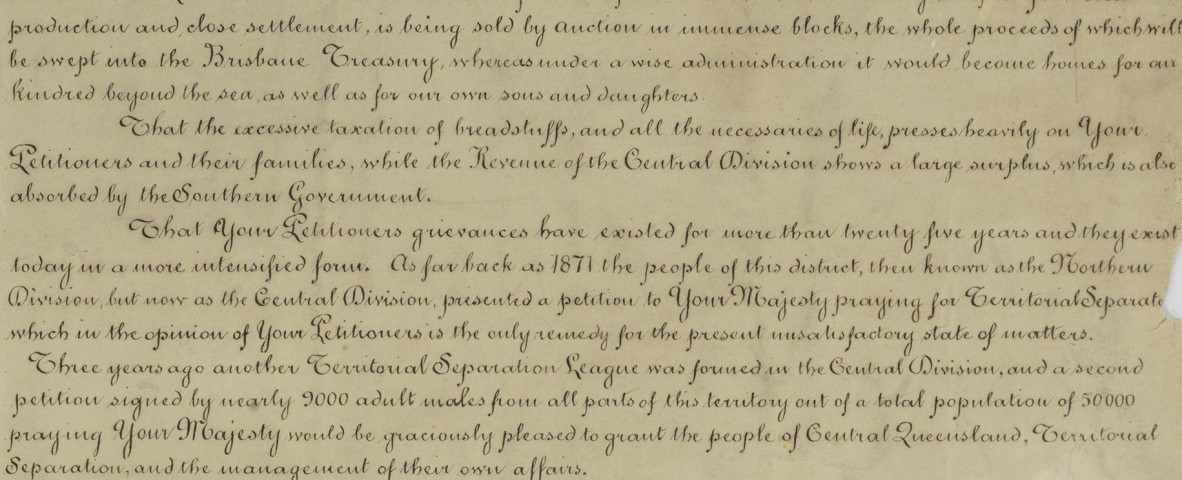 production and close settlement, is being sold by auction in immense blocks, the whole proceeds of which will
be swept into the Brisbane Treasury, whereas under a wise administration it would become homes for our
kindred beyond the sea, as well as for our own sons and daughters.
That the excessive taxation of breadstuffs, and all the necessaries of life, presses heavily on Your
Petitioners and their families, while the Revenue of the Central Division shows a large surplus, which is also
absorbed by the Southern Government.
That Your Petitioners grievances have existed for more than twenty five years and they exist
today in a more intensified form. As far back as 1871 the people of this district, then known as the Northern
Division, but now as the Central Division, presented a petition to Your Majesty praying for Territorial Separat
which in the opinion of Your Petitioners is the only remedy for the present unsatisfactory state of matters.
Three years ago another Territorial Separation League was formed in the Central Division, and a second
petition signed by nearly 9000 adult males from all parts of this territory out of a total population of 50000
praying Your Majesty would be graciously pleased to grant the people of Central Queensland, Territorial
Separation, and the management of their own affairs.